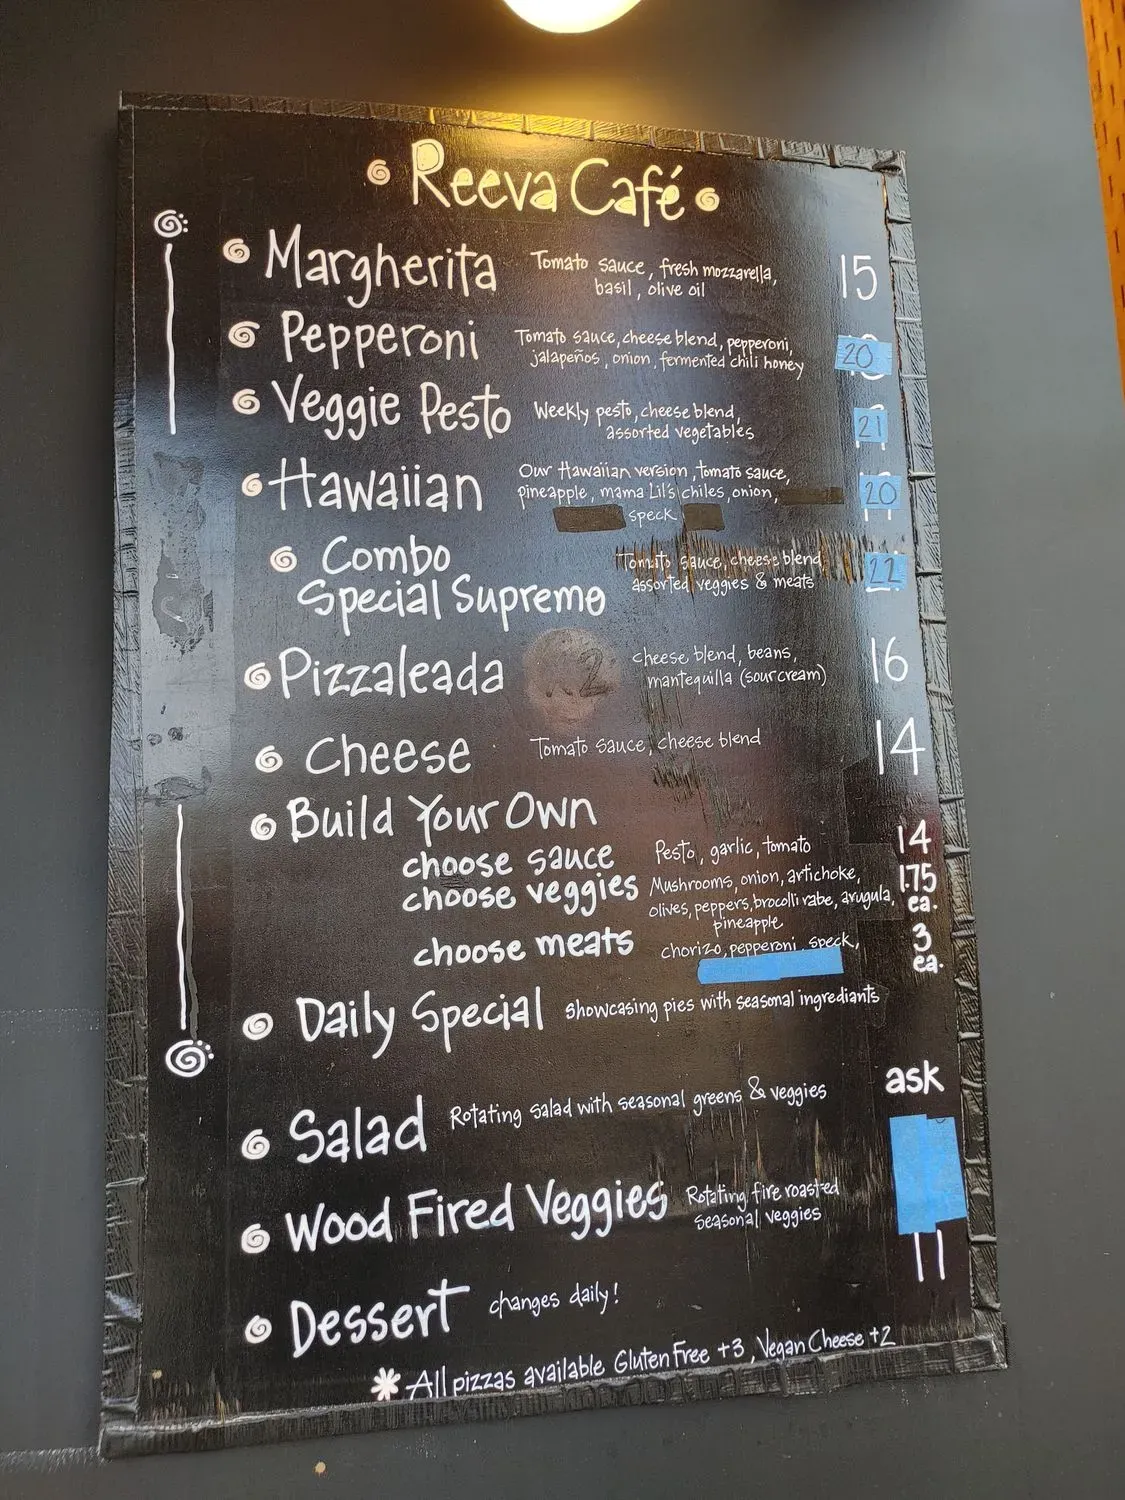 Reeva Café
Margherita Tomato sauce, fresh mozzarella, 15
basil, olive oil
Pepperoni Tomato sauce, cheese blend, pepperoni, 20
jalapeños, onion, fermented chili honey
Veggie Pesto Weekly pesto, cheese blend, 21
assorted vegetables
Hawaiian Our Hawaiian version, tomato sauce, 20
pineapple, mama Lil's chiles, onion,
speck
Combo Tomato sauce, cheese blend, 22
Special Supremo assorted veggies & meats
Pizzaleada cheese blend, beans, 16
mantequilla (sour cream)
Cheese Tomato sauce, cheese blend 14
Build Your Own
choose sauce Pesto, garlic, tomato 14
choose veggies Mushrooms, onion, artichoke, 1.75
olives, peppers, brocolli rabe, arugula, ea.
pineapple
choose meats chorizo, pepperoni, speck, 3
ea.
Daily Special Showcasing pies with seasonal ingrediants
ask
Salad Rotating salad with seasonal greens & veggies
Wood Fired Veggies Rotating fire roasted
seasonal veggies
11
Dessert changes daily!
* All pizzas available Gluten Free +3, Vegan Cheese +2